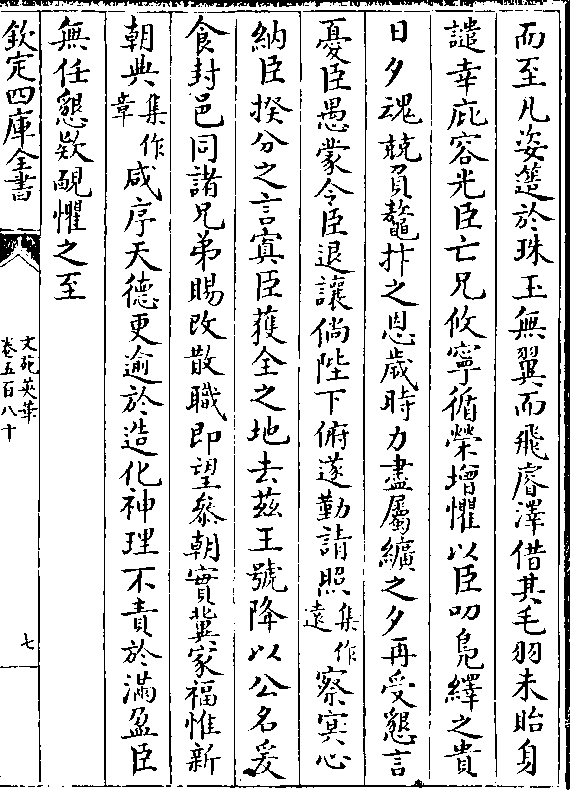 而至凡姿蓬於珠玉無翼而飛睿澤借其毛羽未貽身
譴幸庇容光臣亡兄攸寧循榮增懼以臣叨鳧繹之貴
日夕魂兢負鼇抃之恩歲時力盡屬纊之夕再受懇言
憂臣愚蒙令臣退讓倘陛下俯遂勤請照集作遠察冥心
納臣揆分之言寘臣獲全之地去茲王號降以公名爰
食封邑同諸兄弟賜改散職即望叅朝實冀家福惟新
朝典集作章咸序天德更逾於造化神理不責於滿盈臣
無任懇欵靦懼之至
欽定四庫全書
文苑英華
卷五百八十
七